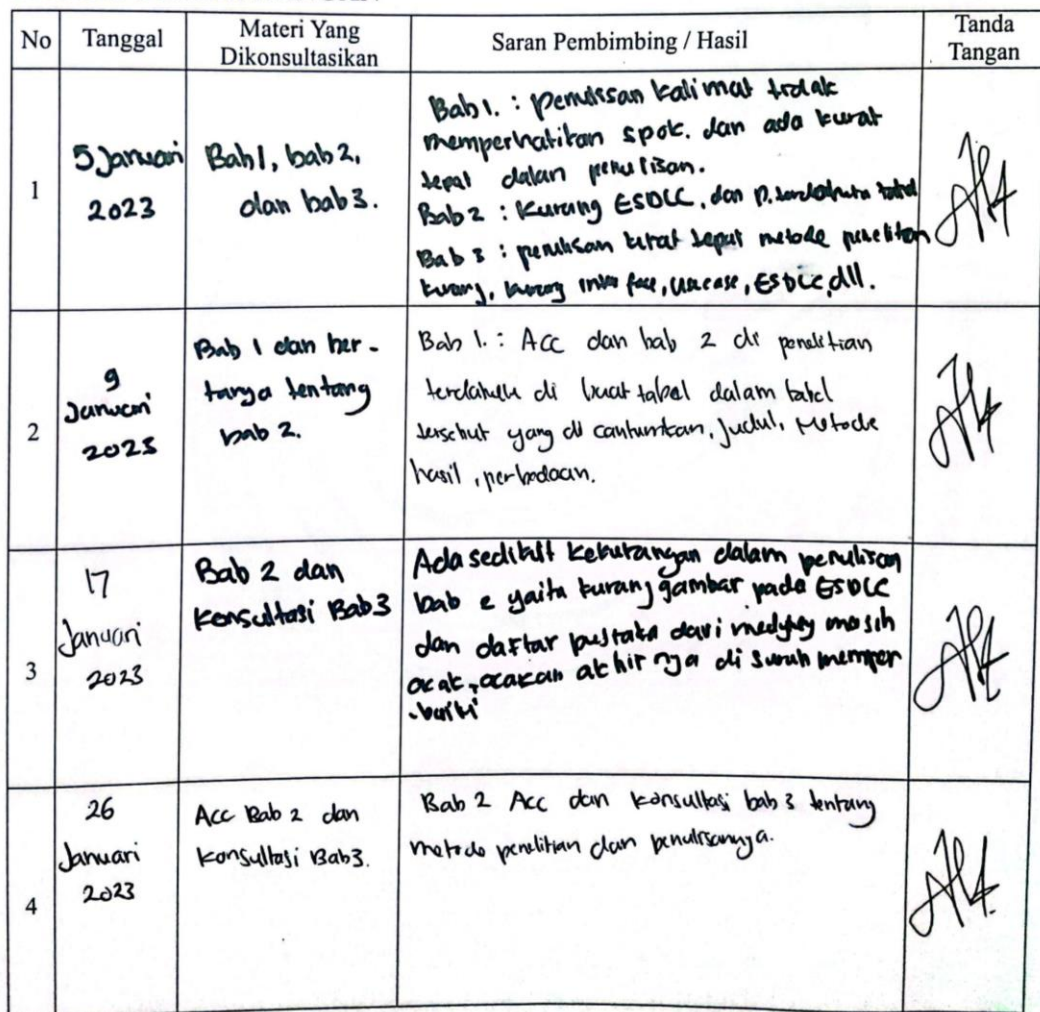 No
Tanggal
Materi Yang
Dikonsultasikan
Saran Pembimbing / Hasil
Tanda
Tangan
1
5 Januari
2023
Bab 1, bab 2,
dan bab 3.
Bab 1. : penulissan kalimat tidak
memperhatikan spok. dan ada kurat
tepat dalan penulisan.
Bab 2 : Kurang ESDLC, dan P. terdahulu tabel
Bab 3 : penulisan kurat tepat metode penelitian
kurang, kurang inter face, usecase, ESDLC, dll.
2
9
Januari
2023
Bab 1 dan ber-
tanya tentang
bab 2.
Bab 1. : Acc dan bab 2 di penelitian
terdahulu di buat tabel dalam tabel
tersebut yang di cantumkan, judul, Metode
hasil, perbedaan.
3
17
Januari
2023
Bab 2 dan
Konsultasi Bab 3
Ada sedikit kekurangan dalam penulisan
bab 2 yaitu kurang gambar pada ESDLC
dan daftar pustaka dari masih
acak, acakan akhir nya di suruh memper
-baiki
4
26
Januari
2023
Acc Bab 2 dan
Konsultasi Bab 3.
Bab 2 Acc dan konsultasi bab 3 tentang
metode penelitian dan penulisannya.